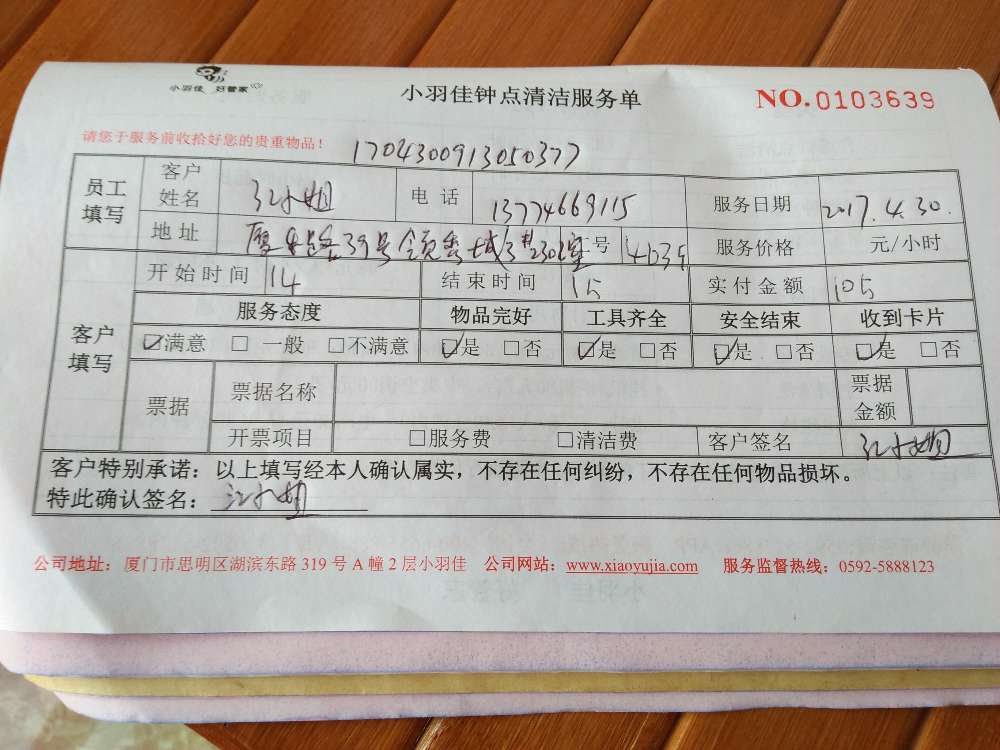 小羽佳 好管家
小羽佳钟点清洁服务单
NO.0103639
请您于服务前收拾好您的贵重物品！
1704300913050377
员工填写 客户姓名 江小姐 电话 13774669115 服务日期 2017.4.30.
地址 39号领秀城 号 服务价格 元/小时
开始时间 14 结束时间 15 实付金额 105
客户填写 服务态度 物品完好 工具齐全 安全结束 收到卡片
☑满意 □ 一般 □不满意 ☑是 □否 ☑是 □否 ☑是 □否 ☑是 □否
票据 票据名称 票据金额
开票项目 □服务费 □清洁费 客户签名 江小姐
客户特别承诺：以上填写经本人确认属实，不存在任何纠纷，不存在任何物品损坏。
特此确认签名：江小姐
公司地址：厦门市思明区湖滨东路 319 号 A 幢 2 层小羽佳 公司网站：www.xiaoyujia.com 服务监督热线：0592-5888123